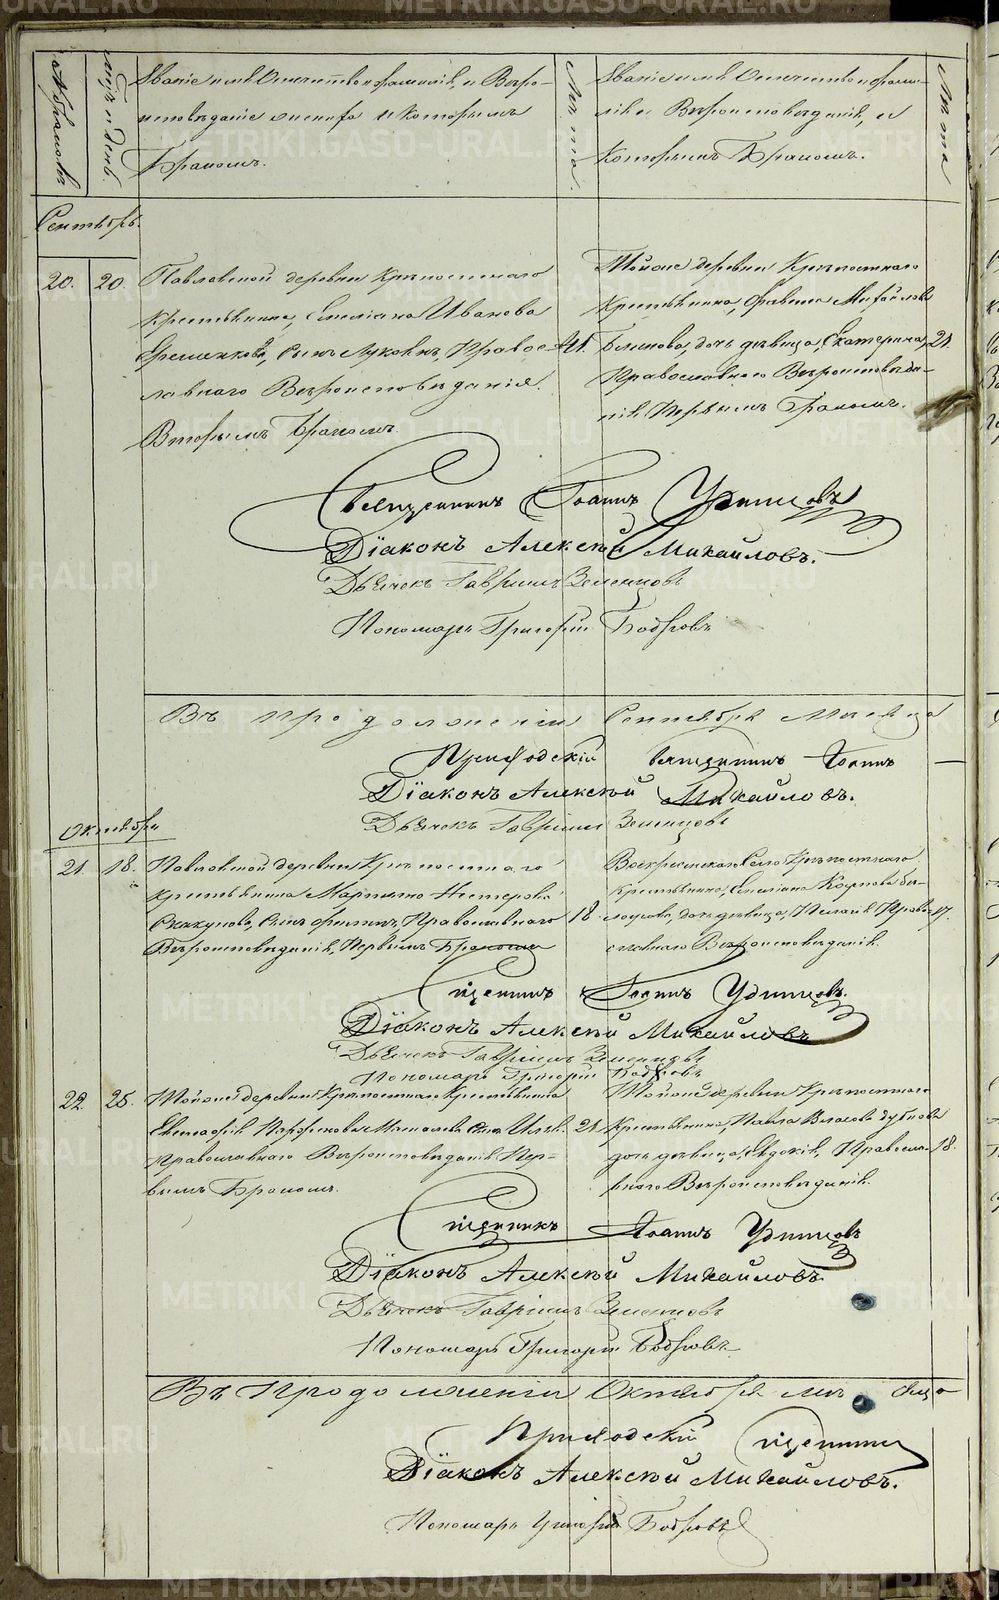 Звание имя Отчество и фамилия, и Веро-
исповедание жениха и которымъ
Бракомъ.
Лета.
Звание имя Отчество и фами-
лия Вероисповедание, и
Которымъ Бракомъ.
Лета
Сентябрь.
20. 20. Павловской деревни Крѣпостнаго
Крестьянина, Емелiана Иванова
сынъ Лукоянъ, Право- 41.
славнаго Вѣроисповѣданiя.
Вторымъ бракомъ.
Тойже деревни Крѣпостнаго
Крестьянина, Михайлова
Блинова, дочь дѣвица, Екатерина, 21.
Православнаго Вѣроисповѣда-
нiя, Первымъ Бракомъ.
Священникъ Iоаннъ Удинцовъ
Дiаконъ Алексѣй Михайловъ.
Дьячекъ Гаврiилъ Земенцовъ
Пономарь Григорiй Бобровъ
Въ продолженiи Сентября Месяца
Приходскiй Священникъ Iоаннъ
Дiаконъ Алексѣй Михайловъ.
Дьячекъ Гаврiилъ Земенцовъ
Октябрь
21. 18. Павловской деревни Крѣпостнаго
крестьянина Мартина Нестерова
Скакунова, сынъ Православнаго 18.
Вѣроисповѣданiя, Первымъ Бракомъ
Воскресенскаго Села Крѣпостнаго
крестьянина, Емелiана Карпова
дочь дѣвица, Пелагiя Право- 17.
славнаго Вѣроисповѣданiя.
Священникъ Iоаннъ Удинцовъ.
Дiаконъ Алексѣй Михайловъ
Дьячекъ Гаврiилъ Земенцовъ
Пономарь Григорiй Бобровъ
22. 25. Тойже деревни Крѣпостнаго Крестьянина
сынъ Илья. 21.
Православнаго Вѣроисповѣданiя Пер-
вымъ Бракомъ.
Тойже деревни Крѣпостнаго
Крестьянина, Павла Власова
дочь дѣвица, Евдокiя, Правосла- 18.
внаго Вѣроисповѣданiя.
Священникъ Iоаннъ Удинцовъ
Дiаконъ Алексѣй Михайловъ
Дьячекъ Гаврiилъ Земенцовъ
Пономарь Григорiй Бобровъ
Въ Продолженiи Октября месяца
Приходскiй Священникъ
Дiаконъ Алексѣй Михайловъ.
Пономарь Григорiй Бобровъ
METRIKI.GASO-URAL.RU